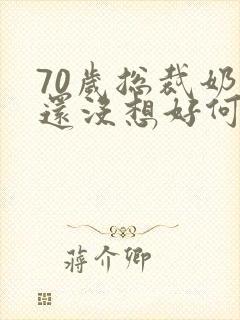 70歲總裁奶
還沒想好何
蔣介卿